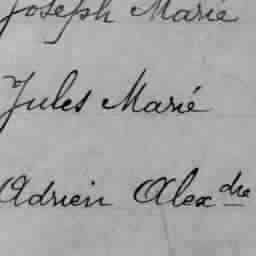 Joseph Marie
Jules Marié
Adrien Alexdre